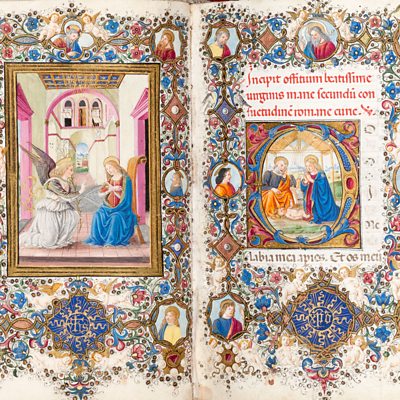 Incipit offitium beatissime
uirginis marie secundũ con
suetudinẽ romane curie. Ad
D
ne
labia mea aṗies. Et os meũ